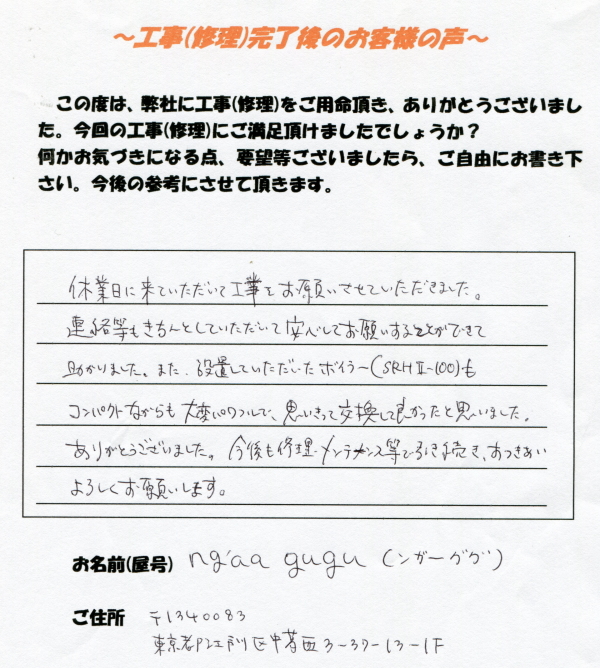 ～工事(修理)完了後のお客様の声～
この度は、弊社に工事(修理)をご用命頂き、ありがとうございまし
た。今回の工事(修理)にご満足頂けましたでしょうか？
何かお気づきになる点、要望等ございましたら、ご自由にお書き下
さい。今後の参考にさせて頂きます。
休業日に来ていただいて工事をお願いさせていただきました。
連絡等もきちんとしていただいて安心してお願いすることができて
助かりました。また、設置していただいたボイラー(SRHII-100)も
コンパクトながらも大変パワフルで、思いきって交換して良かったと思いました。
ありがとうございました。今後も修理・メンテナンス等で引き続き、おつきあい
よろしくお願いします。
お名前(屋号) ng'aa gugu (ンガーググ)
ご住所 〒1340083
東京都江戸川区中葛西3-37-13-1F